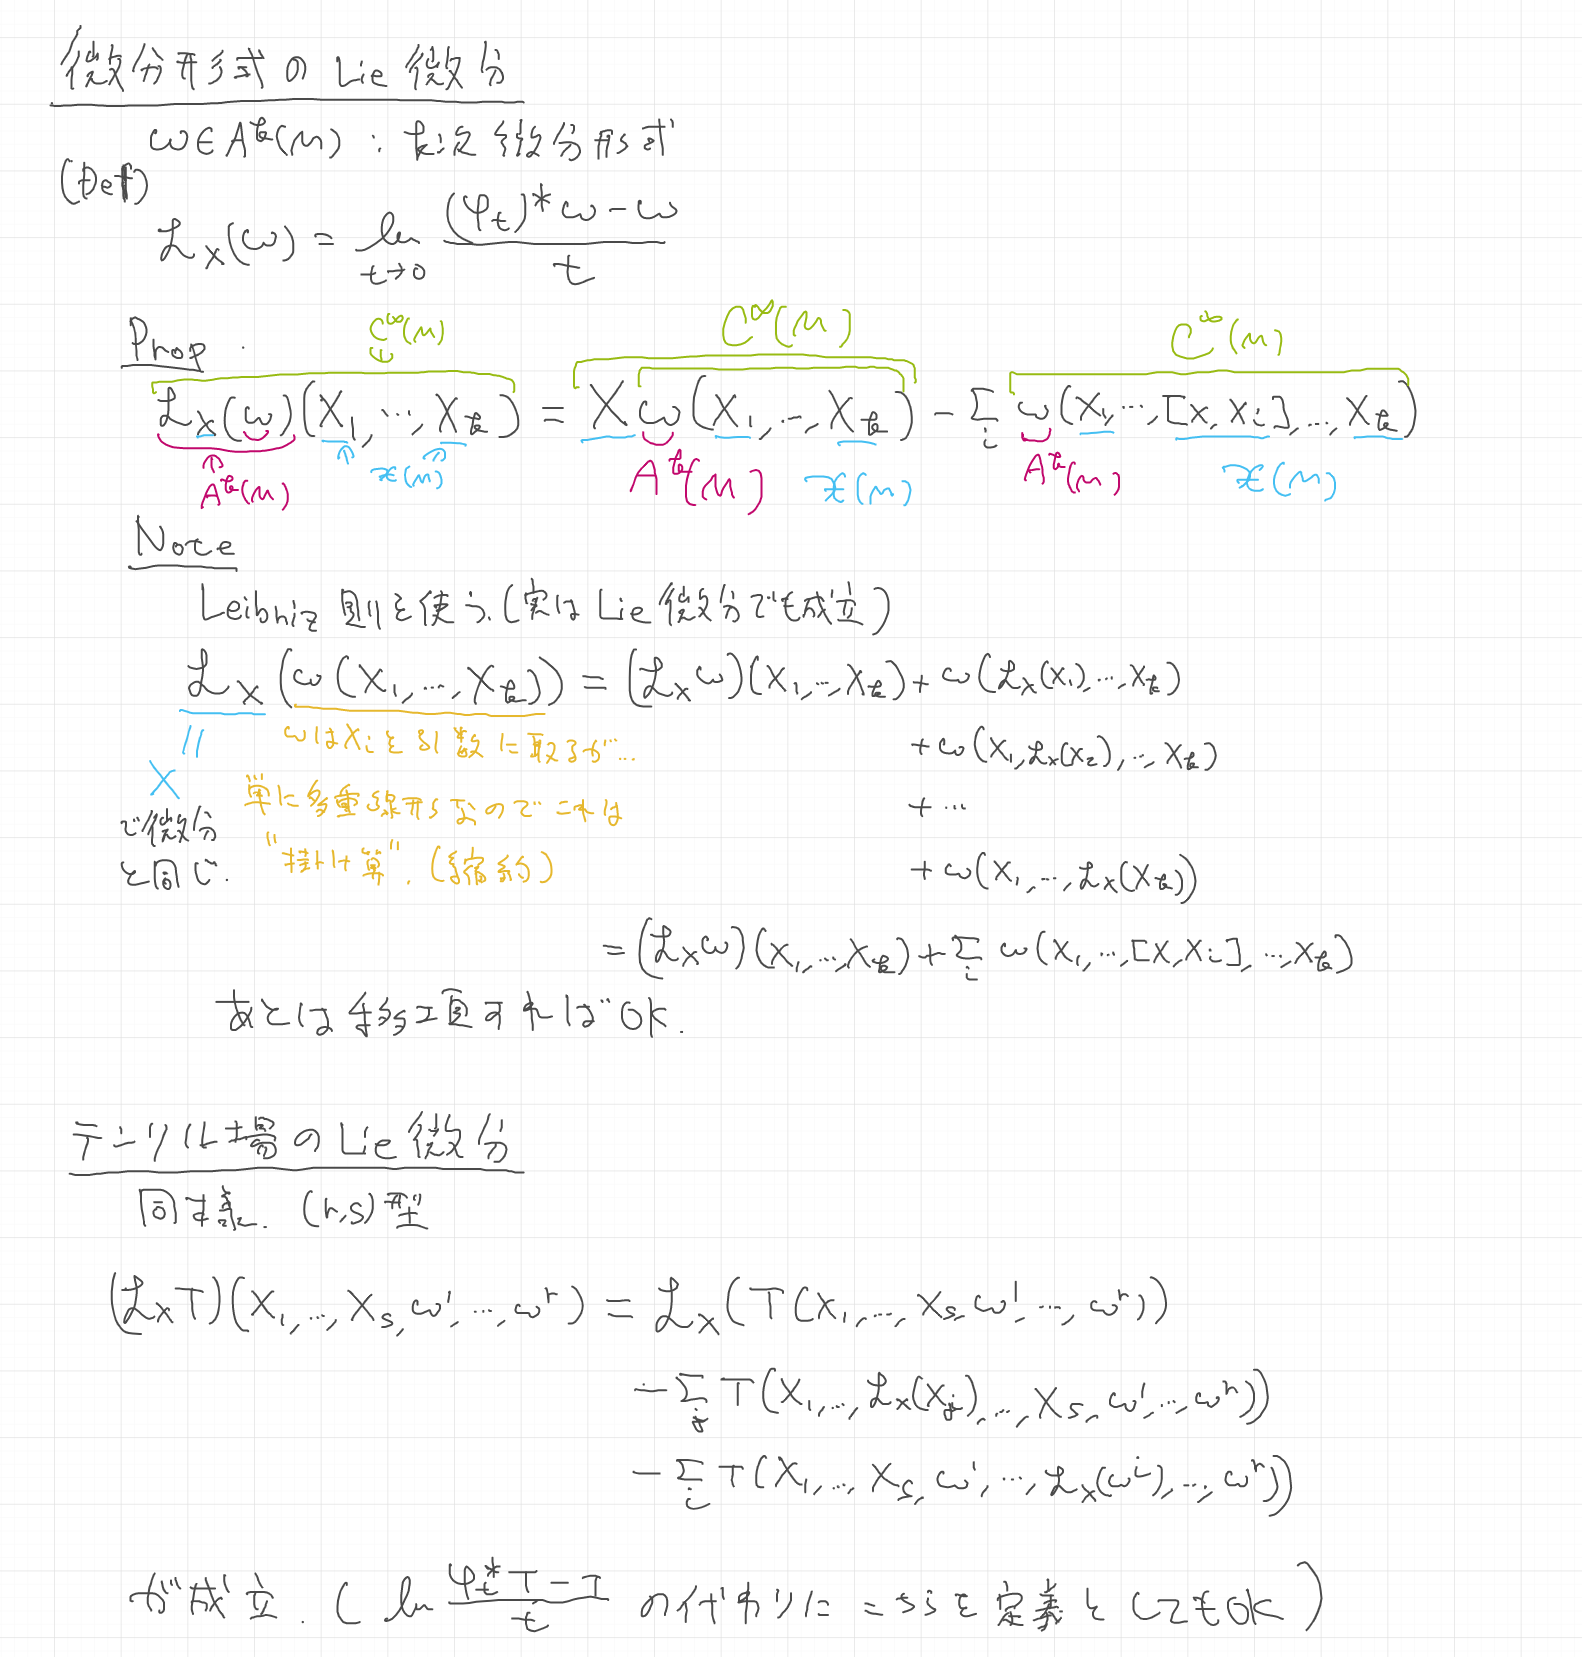 微分形式の Lie 微分
ω∈A^k(M) : k次 微分形式
(Def)
ℒ_X(ω) = lim_{t→0} ((φ_t)^* ω − ω)/t
Prop.
C^∞(M) C^∞(M) C^∞(M)
ℒ_X(ω)(X_1, …, X_k) = X ω(X_1, …, X_k) − Σ_i ω(X_1, …, [X, X_i], …, X_k)
A^k(M) 𝔛(M) A^k(M) 𝔛(M) A^k(M) 𝔛(M)
Note
Leibniz 則を使う. (実は Lie 微分でも成立)
ℒ_X (ω(X_1, …, X_k)) = (ℒ_X ω)(X_1, …, X_k) + ω(ℒ_X(X_1), …, X_k)
+ ω(X_1, ℒ_X(X_2), …, X_k)
+ …
+ ω(X_1, …, ℒ_X(X_k))
||
X
で微分
と同じ.
ωはX_iを引数に取るが…
単に多重線形なのでこれは
"掛け算". (縮約)
= (ℒ_X ω)(X_1, …, X_k) + Σ_i ω(X_1, …, [X, X_i], …, X_k)
あとは移項すれば OK.
テンソル場の Lie 微分
同様. (r,s)型
(ℒ_X T)(X_1, …, X_s, ω^1, …, ω^r) = ℒ_X(T(X_1, …, X_s, ω^1, …, ω^r))
− Σ_j T(X_1, …, ℒ_X(X_j), …, X_s, ω^1, …, ω^r))
− Σ_i T(X_1, …, X_s, ω^1, …, ℒ_X(ω^i), …, ω^r))
が成立. ( lim (φ_t^* T − T)/t の代わりに こちらを定義としてもOK )